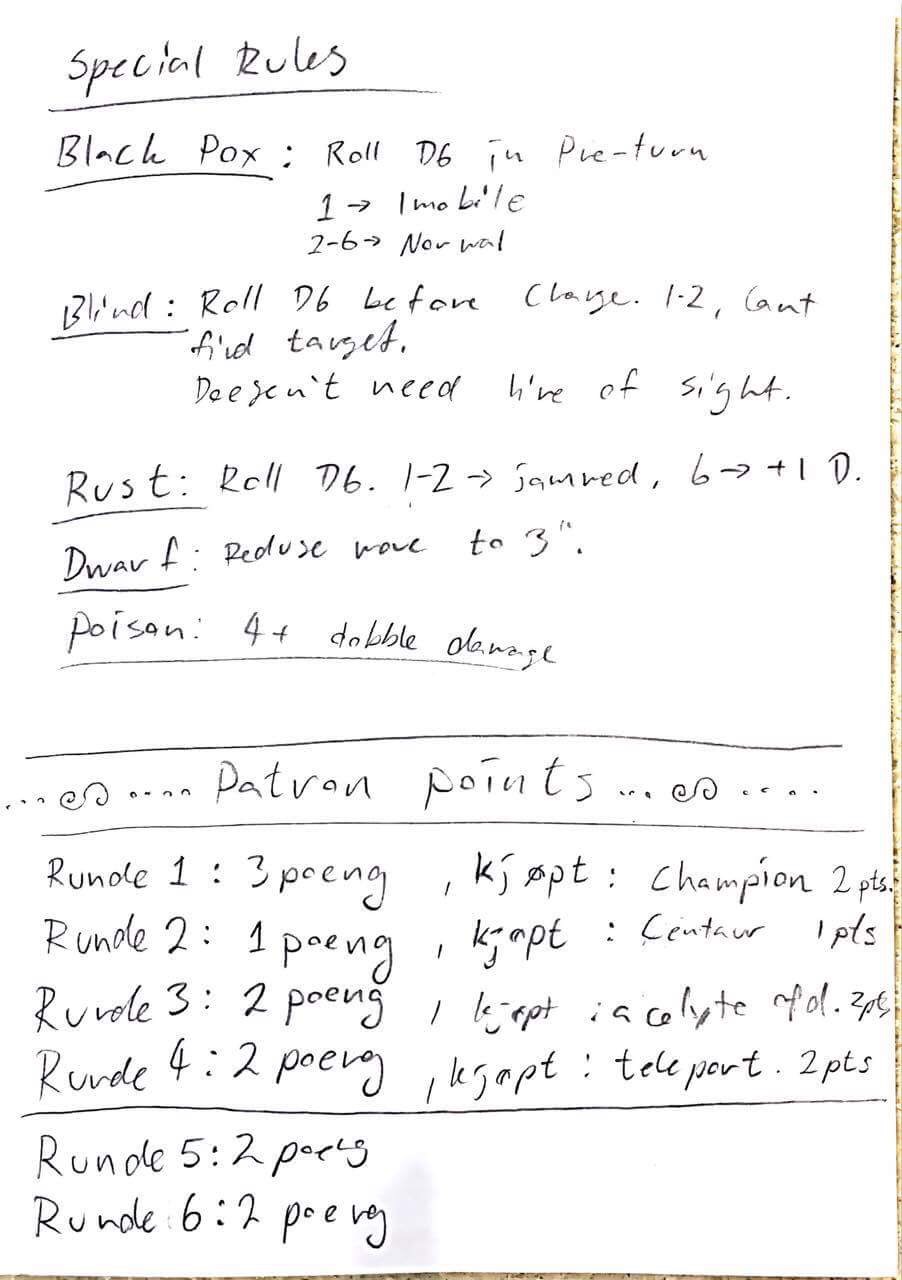 Special Rules
Black Pox: Roll D6 in Pre-turn
1 → Imobile
2-6→ Normal
Blind: Roll D6 before Charge. 1-2, Cant
find target.
Doesen't need line of sight.
Rust: Roll D6. 1-2 → jammed, 6 → +1 D.
Dwarf: Reduse move to 3".
Poison: 4+ dobble damage
Patron points
Runde 1: 3 poeng, kjøpt: Champion 2 pts.
Runde 2: 1 poeng, kjøpt: Centaur 1 pts
Runde 3: 2 poeng, kjøpt: acolyte of d. 2pts
Runde 4: 2 poeng, kjøpt: teleport. 2 pts
Runde 5: 2 poeng
Runde 6: 2 poeng